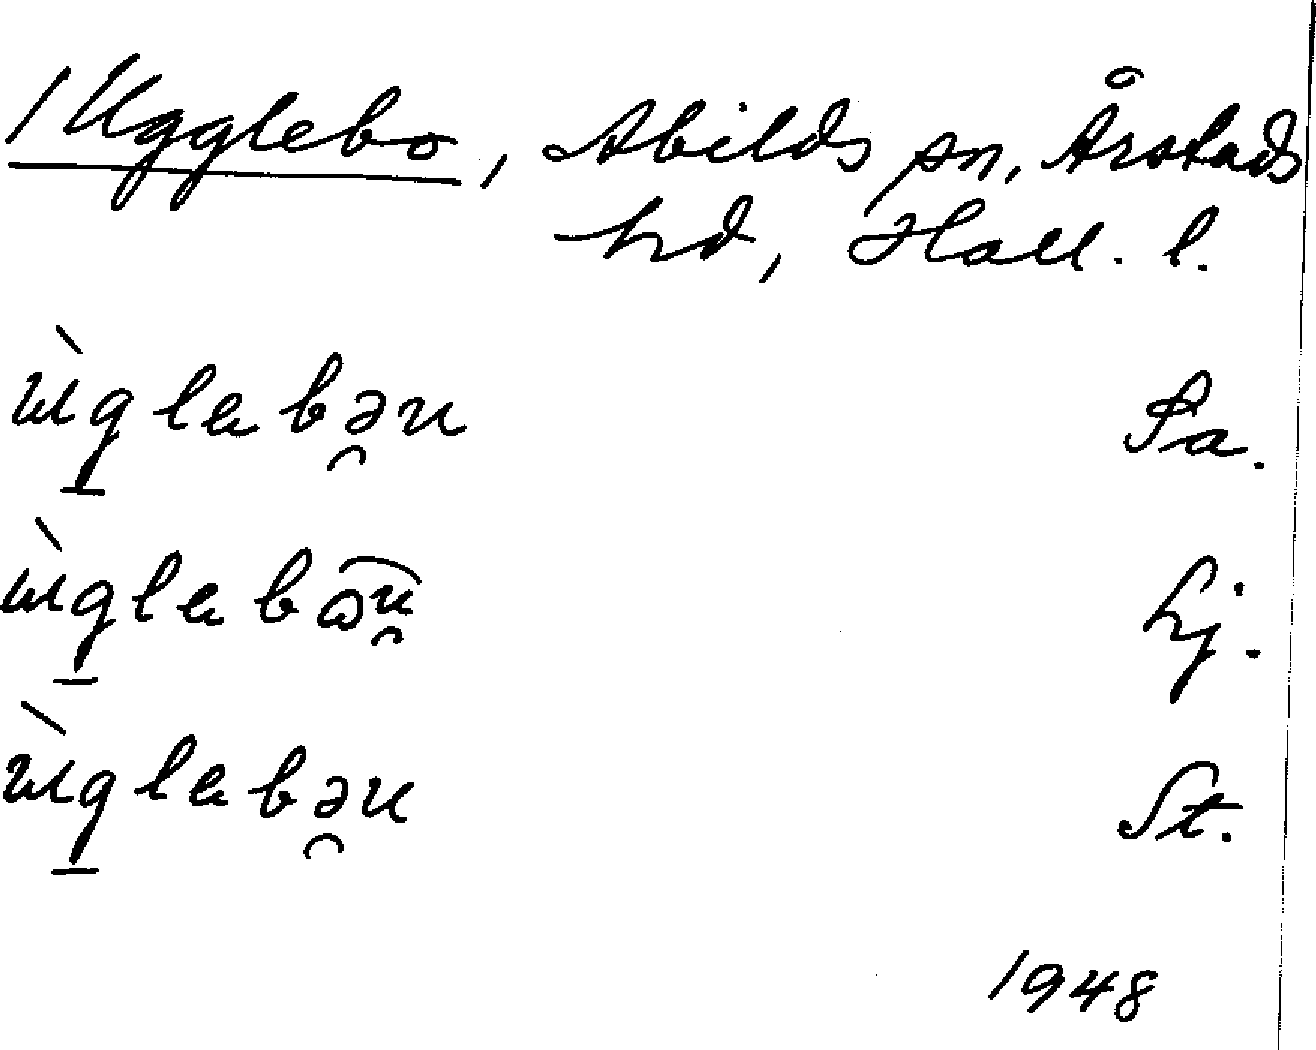 /Ugglebo, Abilds sn, Årstads
hd, Hall. l.
ùg̱lebə̯u Sa.
ùg̱lebωu̯ Lj.
ùg̱lebə̯u St.
1948